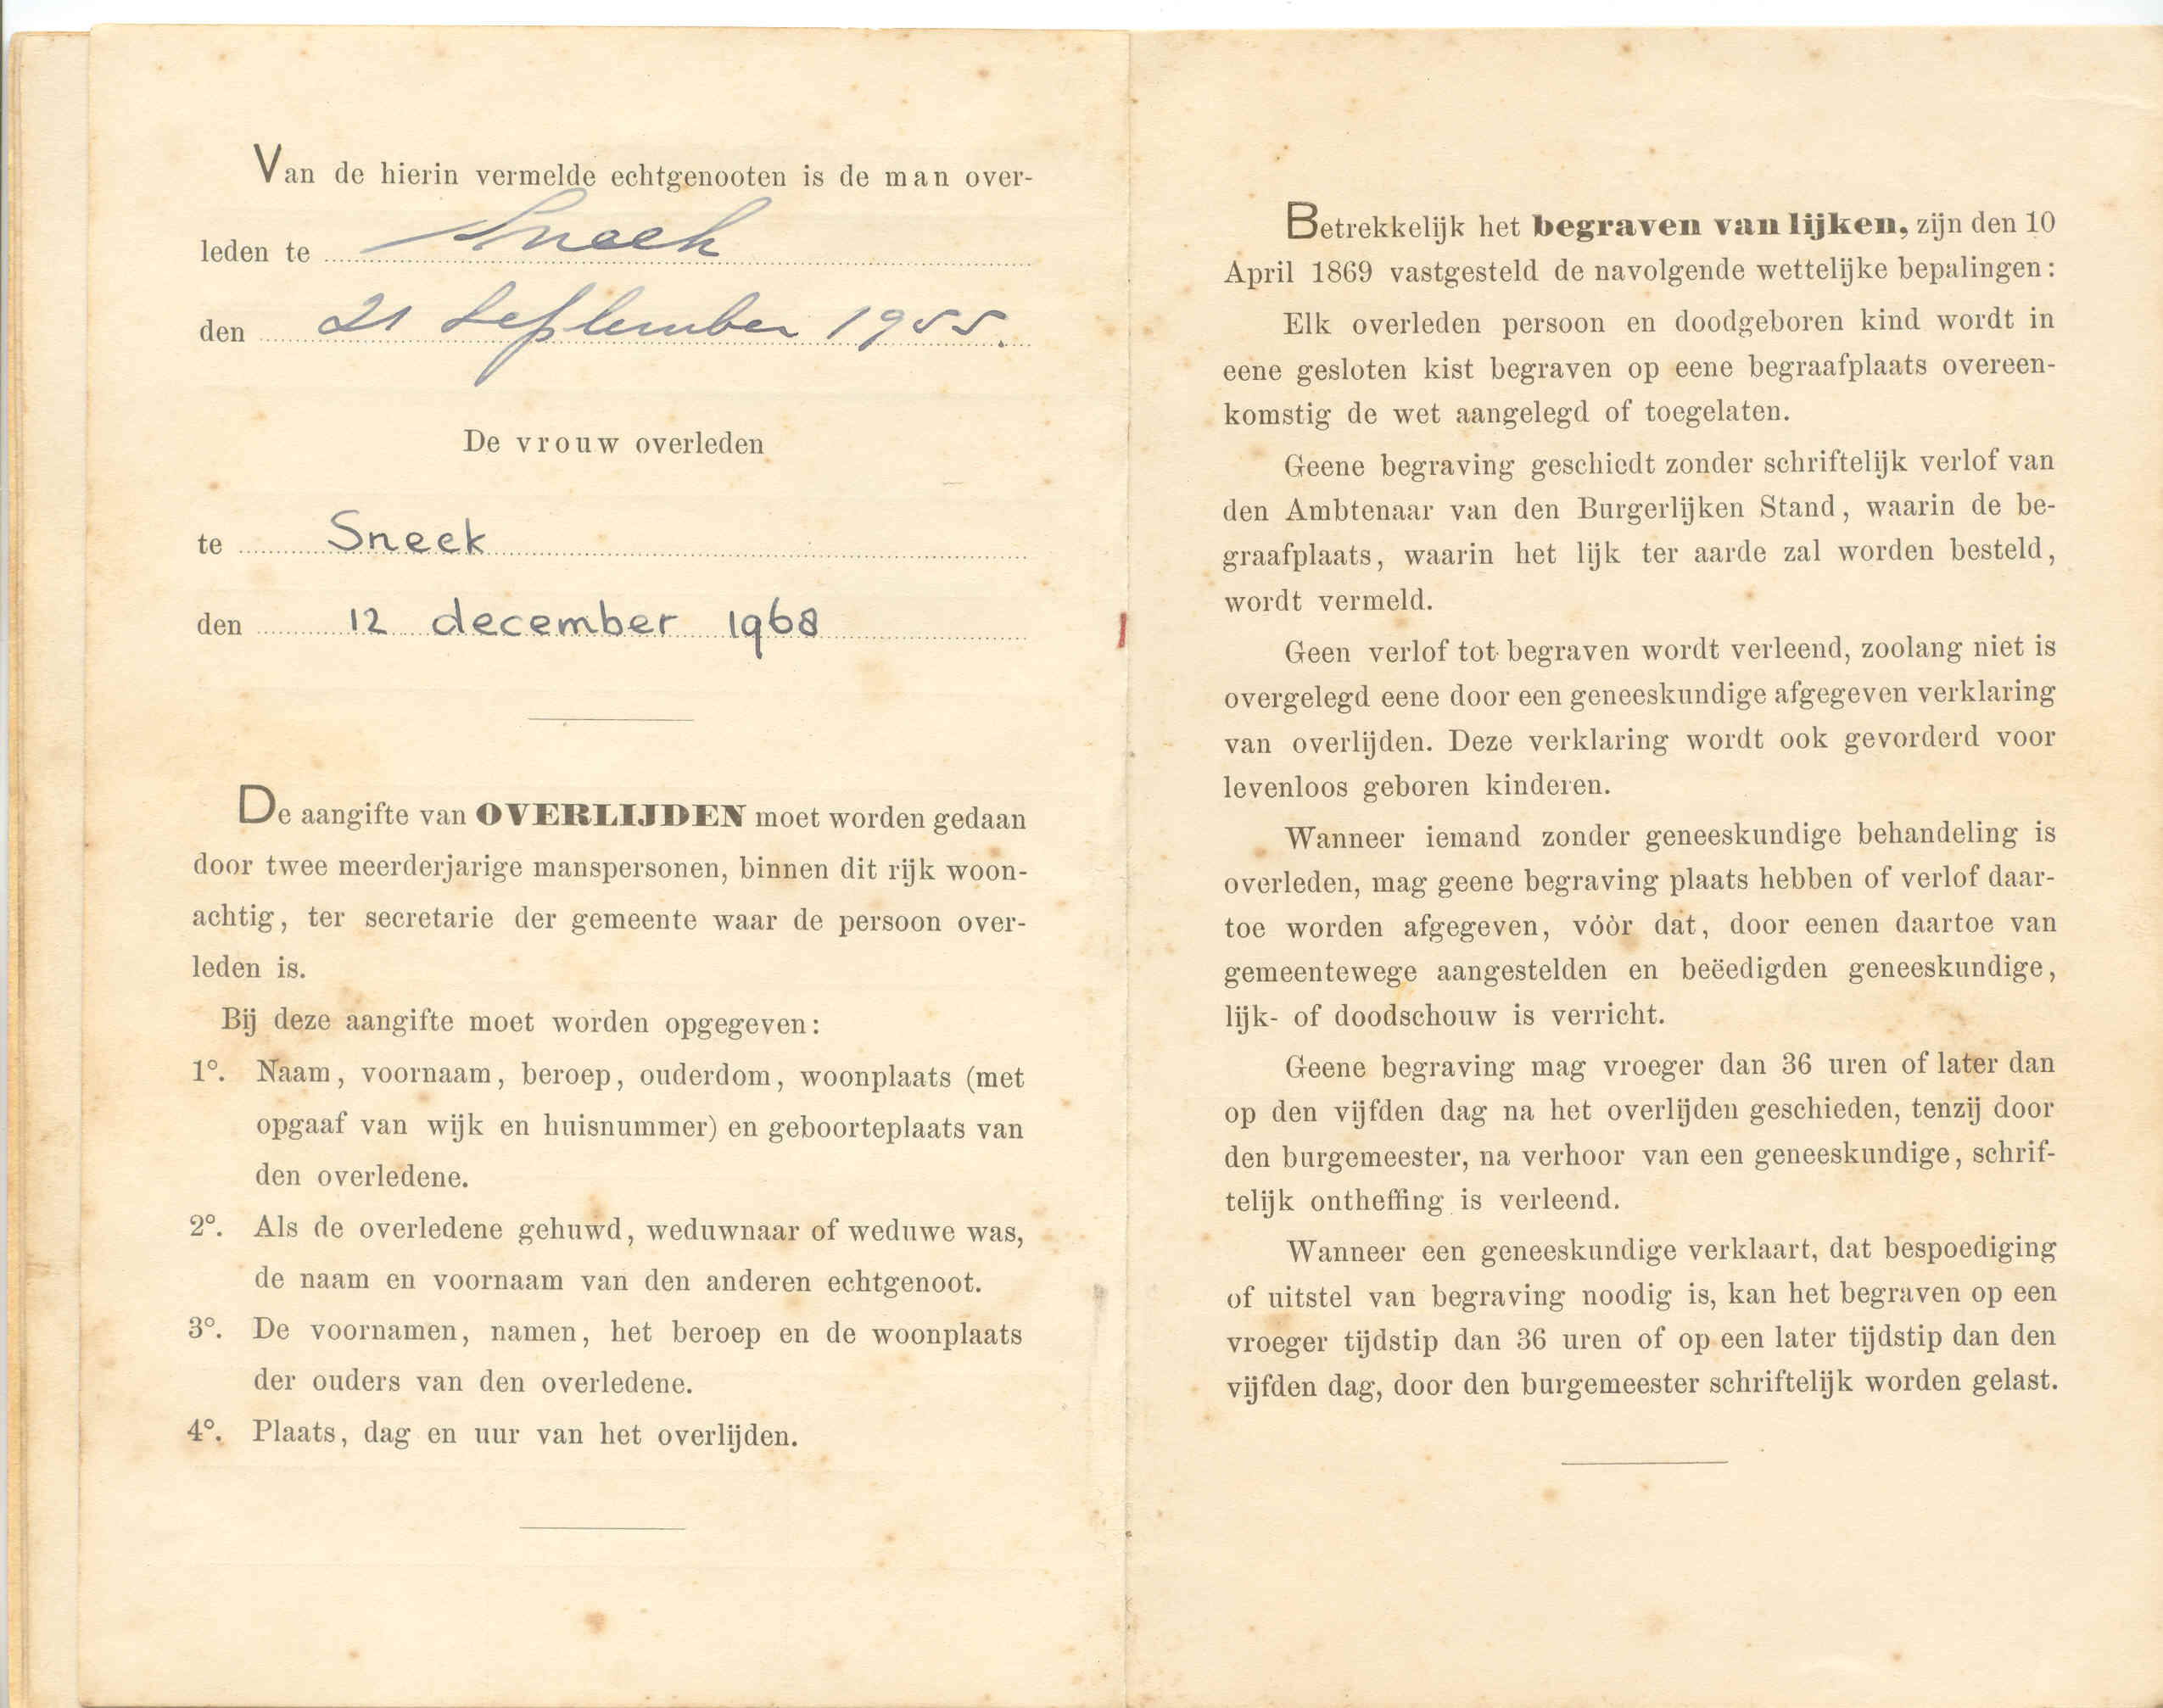 Van de hierin vermelde echtgenooten is de man over-
leden te Sneek
den 21 September 1955.
De vrouw overleden
te Sneek
den 12 december 1968
De aangifte van OVERLIJDEN moet worden gedaan
door twee meerderjarige manspersonen, binnen dit rijk woon-
achtig, ter secretarie der gemeente waar de persoon over-
leden is.
Bij deze aangifte moet worden opgegeven:
1°. Naam, voornaam, beroep, ouderdom, woonplaats (met
opgaaf van wijk en huisnummer) en geboorteplaats van
den overledene.
2°. Als de overledene gehuwd, weduwnaar of weduwe was,
de naam en voornaam van den anderen echtgenoot.
3°. De voornamen, namen, het beroep en de woonplaats
der ouders van den overledene.
4°. Plaats, dag en uur van het overlijden.
Betrekkelijk het begraven van lijken, zijn den 10
April 1869 vastgesteld de navolgende wettelijke bepalingen:
Elk overleden persoon en doodgeboren kind wordt in
eene gesloten kist begraven op eene begraafplaats overeen-
komstig de wet aangelegd of toegelaten.
Geene begraving geschiedt zonder schriftelijk verlof van
den Ambtenaar van den Burgerlijken Stand, waarin de be-
graafplaats, waarin het lijk ter aarde zal worden besteld,
wordt vermeld.
Geen verlof tot begraven wordt verleend, zoolang niet is
overgelegd eene door een geneeskundige afgegeven verklaring
van overlijden. Deze verklaring wordt ook gevorderd voor
levenloos geboren kinderen.
Wanneer iemand zonder geneeskundige behandeling is
overleden, mag geene begraving plaats hebben of verlof daar-
toe worden afgegeven, vóòr dat, door eenen daartoe van
gemeentewege aangestelden en beëedigden geneeskundige,
lijk- of doodschouw is verricht.
Geene begraving mag vroeger dan 36 uren of later dan
op den vijfden dag na het overlijden geschieden, tenzij door
den burgemeester, na verhoor van een geneeskundige, schrif-
telijk ontheffing is verleend.
Wanneer een geneeskundige verklaart, dat bespoediging
of uitstel van begraving noodig is, kan het begraven op een
vroeger tijdstip dan 36 uren of op een later tijdstip dan den
vijfden dag, door den burgemeester schriftelijk worden gelast.